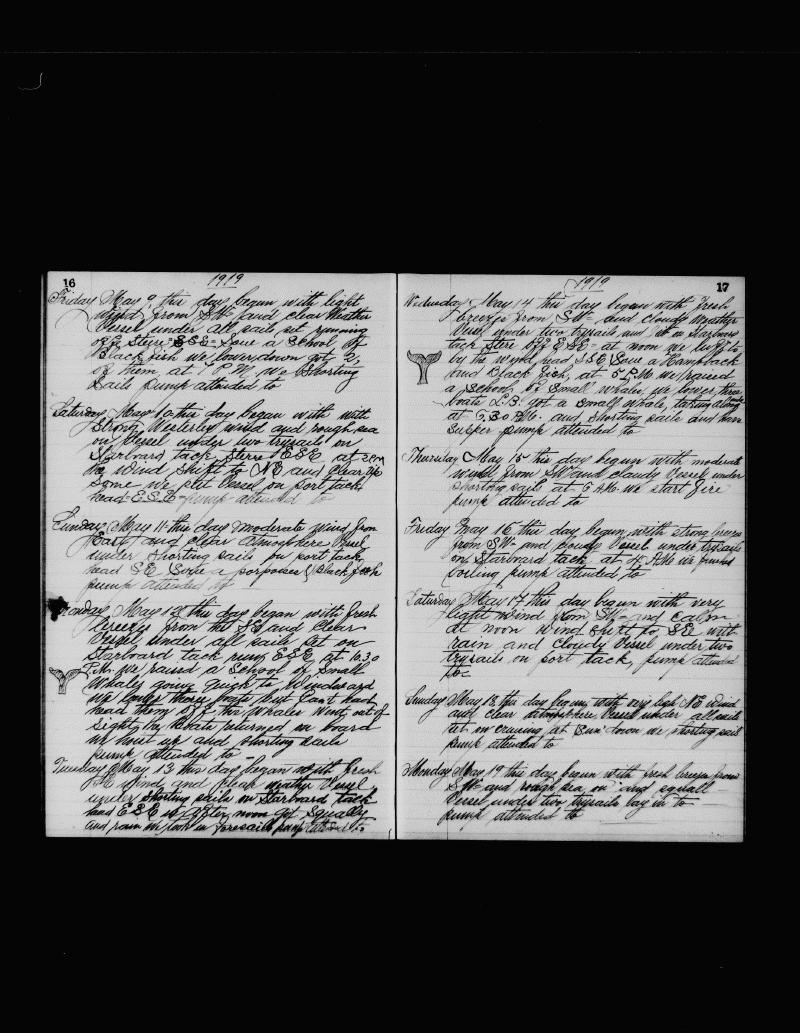 16
1919
Friday May 9, this day begun with light
wind from SW- and clear Weather
Vessel under all sails set running
off Stere ESE- Soue a School of
Black fish we lower down got 2,
of them, at 7 P.M. we Shorting
Sails pump attended to
Saturday May 10 this day began with with
Strong Westerley wind and rough sea
on, Vessel under two trysails on
Starboard tack, Sterre ESE at 2 P.M.
the Wind Shift to NE and Clear up
Some we put Vessel on port tack
head E.S.E pump attended to
Sunday May 11- this day moderate Wind from
East and clear atmosphere Vessel
under Shorting sails on port tack,
head SE Soue a porpoises & Black fish
pump attended to
Monday May 12 this day began with fresh
breezes from the NE and Clear
Vessel under all sails Set on
Starboard tack runing ESE at 10.30
A.M. we raised a School of Small
Whales going quigh to Windward
we lower three boats but Cant
head them off the Whales Went out of
Sight, the boats returned on board
we and Shorting Sails
pump attended to
Tuesday May 13 this day began with fresh
NE wind and Clear weather Vessel
under Shorting sails on Starboard tack
head ESE in after noon got Squally
and rain we took in foresails pump attended to
1919
17
Wednesday May 14 this day began with fresh
breezes from SW- and cloudy Weather
Vessel under two trysails and on Starboard
tack Stere off ESE- at noon we luff to
by the wind head SSE Soue a Hampback
and Black fish, at 5 P.M. we raised
a School of Small Whales, we lower three
boats L.B. got a small whale, taking along side
at 6.30 P.M. and Shorting sails and have
Supper pump attended to
Thursday May 15 this day begun with moderate
wind from SW and cloudy Vessel under
Shorting sails at 6 A.M. we start fire
pump attended to
Friday May 16 this day begun with strong breezes
from SW- and cloudy Vessel under trysails
on Starboard tack at 4 P.M. we finished
boiling pump attended to
Saturday May 17 this day begun with very
light wind from SW- and calm
at noon Wind Shift to SE with
rain and cloudy Vessel under two
trysails on port tack, pump attended
to
Sunday May 18, this day begun with very ligh NE wind
and clear atmosphere Vessel under all sails
set on cruising at Sun down we shorting sail
pump attended to
Monday May 19 this day begun with fresh breeze from
SW and rough sea on and squall
Vessel under two trysails lay in to
pump attended to